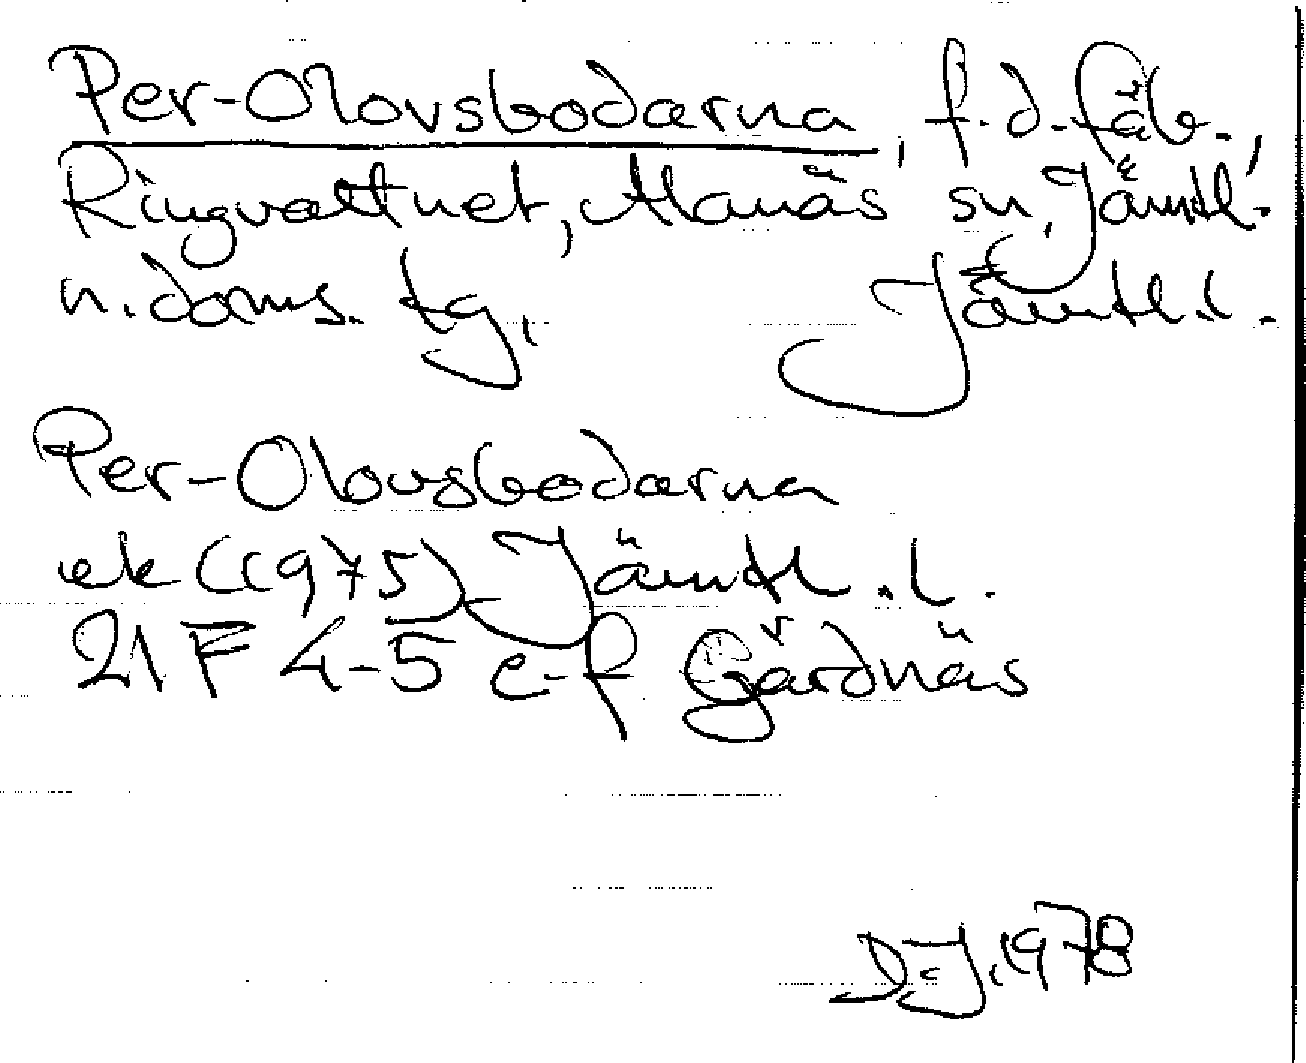 Per-Olovsbodarna, f.d. fäb.,
Ringvattnet, Alanäs sn, Jämtl.
n. doms. tg, Jämtl. l.
Per-Olovsbodarna
ek (1975) Jämtl. l.
21 F 4-5 e-f Gärdnäs
D.J. 1978